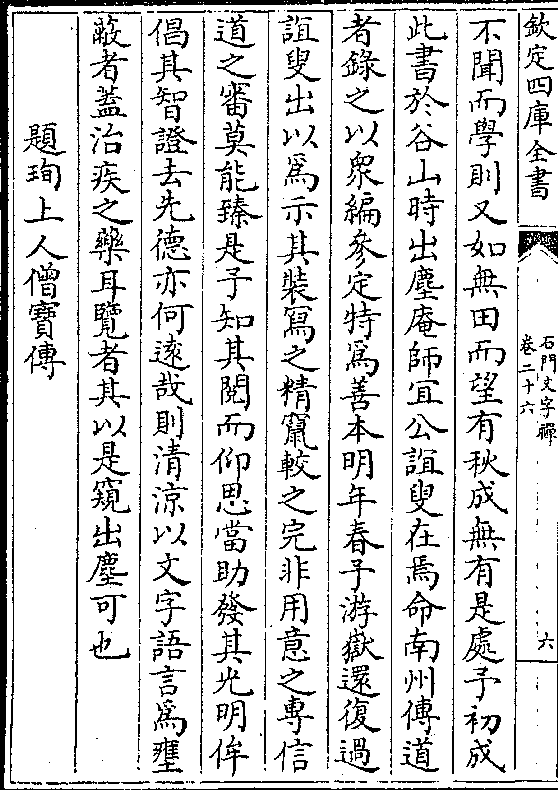 欽定四庫全書
石門文字禪
卷二十六
六
不聞而學則又如無田而望有秋成無有是處予初成
此書於谷山時出塵庵師宜公誼叟在焉命南州傳道
者錄之以衆編參定特爲善本明年春予游嶽還復過
誼叟出以爲示其裝寫之精竄較之完非用意之專信
道之審莫能臻是予知其閱而仰思當助發其光明侔
倡其智證去先德亦何遠哉則清涼以文字語言爲壅
蔽者蓋治疾之藥耳覽者其以是窺出塵可也
題珣上人僧寶傳